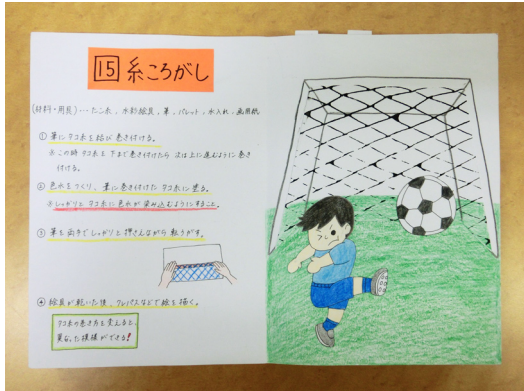 15 糸ころがし
(材料・用具)…たこ糸、水彩絵具、筆、パレット、水入れ、画用紙
① 筆にタコ糸を結び巻き付ける。
※この時タコ糸を下まで巻き付けたら次は上に進むように巻き
付ける。
② 色水をつくり、筆に巻き付けたタコ糸に塗る。
※しっかりとタコ糸に色水が染み込むようにすること。
③ 筆を両手でしっかりと押さえながら転がす。
④ 絵具が乾いた後、クレパスなどで絵を描く。
タコ糸の巻き方を変えると、
異なった模様ができる!